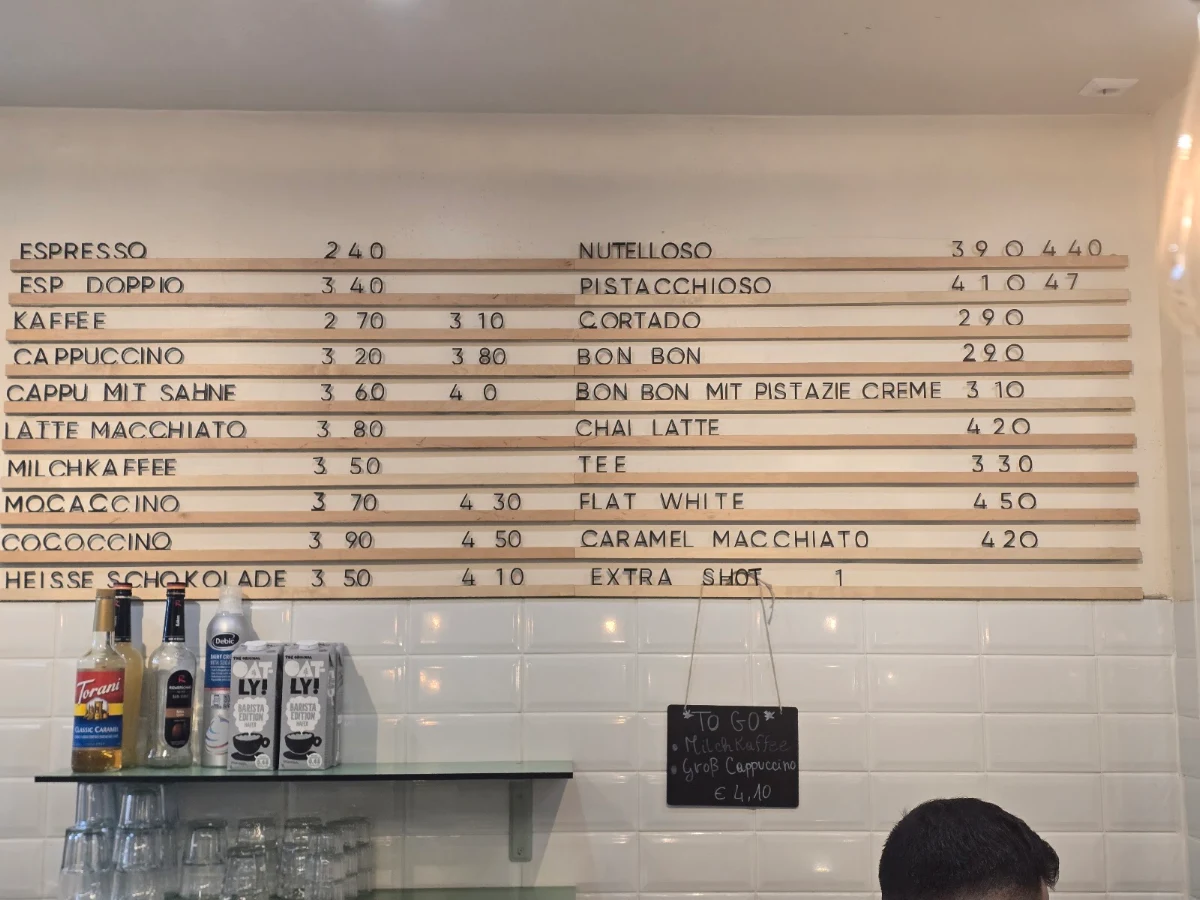 ESPRESSO 2 40
ESP DOPPIO 3 40
KAFFEE 2 70 3 10
CAPPUCCINO 3 20 3 80
CAPPU MIT SAHNE 3 60 4 0
LATTE MACCHIATO 3 80
MILCHKAFFEE 3 50
MOCACCINO 3 70 4 30
COCOCCINO 3 90 4 50
HEISSE SCHOKOLADE 3 50 4 10
NUTELLOSO 3 9 0 4 40
PISTACCHIOSO 4 1 0 4 7
CORTADO 2 9 0
BON BON 2 9 0
BON BON MIT PISTAZIE CREME 3 10
CHAI LATTE 4 2 0
TEE 3 3 0
FLAT WHITE 4 5 0
CARAMEL MACCHIATO 4 2 0
EXTRA SHOT 1
Torani
CLASSIC CARAMEL
Debic
THE ORIGINAL
OAT-
LY!
BARISTA
EDITION
HAFER
THE ORIGINAL
OAT-
LY!
BARISTA
EDITION
HAFER
TO GO
• Milchkaffee
• Groß Cappuccino
€ 4,10